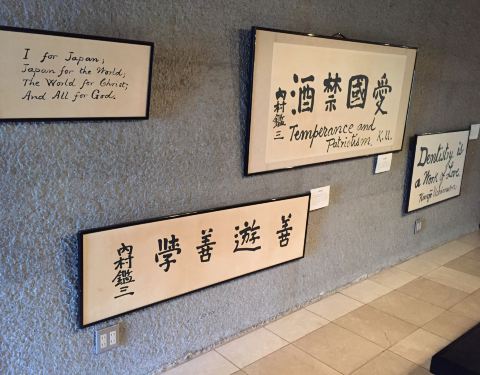 I for Japan;
Japan for the World;
The World for Christ;
And All for God.
愛國禁酒
内村鑑三
Temperance and
Patriotism. K.U.
善遊善學
内村鑑三
Dentistry is
a Work of Love.
Kanzo Uchimura